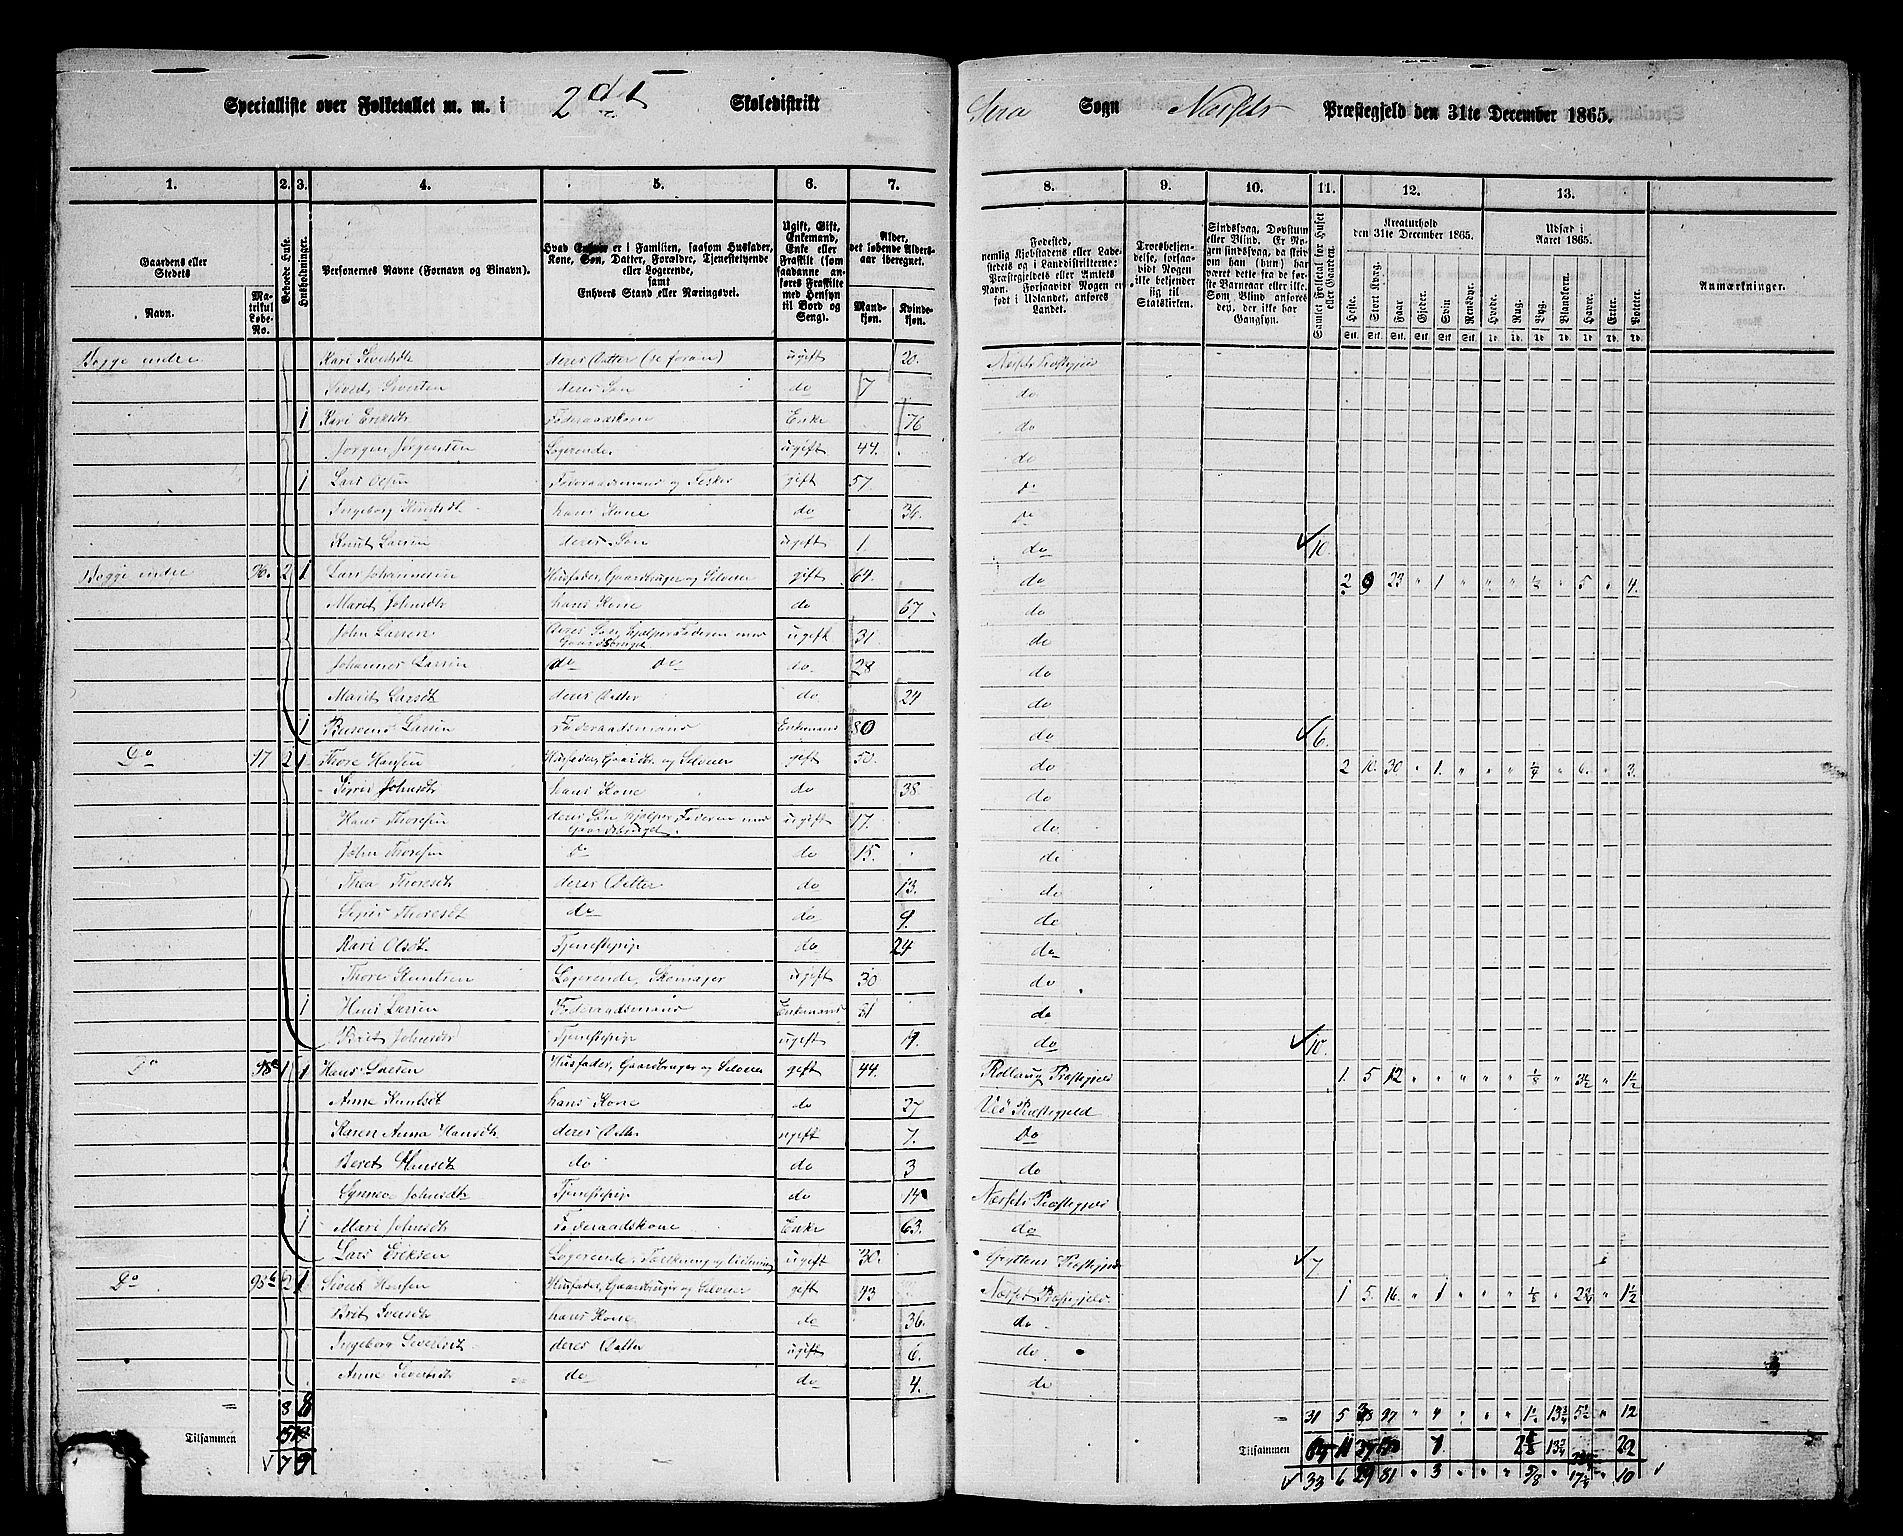 Specialliste over Folketallet m. m. i 2det Skoledistrikt
Sira Sogn Næssets Præstegjeld den 31te December 1865.
1. 2. 3. 4. 5. 6. 7. 8. 9. 10. 11. 12. 13.
Gaardens eller Stedets
Navn. Matrikul Løbe-No.
Beboede Huse.
Husholdninger.
Personernes Navne (Fornavn og Binavn).
Hvad Enhver er i Familien, saasom Husfader, Kone, Søn, Datter, Forældre, Tjenestetyende eller Logerende, samt Enhvers Stand eller Næringsvei.
Ugift, Gift, Enkemand, Enke eller Fraskilt (som saadanne anføres Fraskilte med Hensyn til Bord og Seng).
Alder, det løbende Alders-aar iberegnet.
Mandkjøn. Kvindekjøn.
Fødested, nemlig Kjøbstadens eller Ladestedets og i Landdistrikterne: Præstegjeldets eller Amtets Navn. Forsaavidt Nogen er født i Udlandet, anføres Landet.
Troesbekjendelse, forsaavidt Nogen ikke bekjender sig til Statskirken.
Sindssvag, Døvstum eller Blind. Er Nogen sindssvag, da skrives om han (hun) har været dette fra de første Barneaar eller ikke. Som Blind anføres dej, der ikke har Gangsyn.
Samlet Folketal for Huset eller Gaarden.
Kreaturhold den 31te December 1865.
Heste. Stort Kvæg. Faar. Gjeder. Svin. Rensdyr.
Udsæd i Aaret 1865.
Hvede. Rug. Byg. Blandkorn. Havre. Erter. Poteter.
Anmærkninger.
Bogge indre Kari Sivertsdt deres Datter (se foran) ugift 20. Næssets Præstegjeld
Sivert Sivertsen deres Søn do 7 do
1 Kari Eriksdt Føderaadskone Enke 76 do
Jørgen Jørgensen Logerende. ugift 44. do
1 Lars Olsen Føderaadsmand og Fisker gift 57. do
Ingeborg Knudsdt hans Kone do 36. do
Knut Larsen deres Søn ugift 1. do 10.
Bogge indre 96. 2 1 Lars Johannesen Husfader, Gaardbruger og Selveier gift 64. do 2 9 23 " 1 " " " ½ " 5 " 4.
Marit Johnsdt hans Kone do 67 do
John Larsen deres Søn, hjelper Faderen med Gaardsbruget ugift 31 do
Johannes Larsen do do do 28 do
Marit Larsdt deres Datter do 24 do
1 Larsen Føderaadsmand Enkemand 80 do 6.
Do 97 2 1 Thore Hansen Husfader, Gaardb. og Selveier gift 50. do 2 10. 30 " 1. " " " ¼ " 6. " 3.
Johnsdt hans Kone do 38 do
Hans Thoresen deres Søn hjelper Faderen med Gaardsbruget. ugift 17. do
John Thoresen do do 15. do
Thea Thoresdt deres Datter do 13. do
Thoresdt do do 9. do
Kari Olsdt. Tjenestepige do 24 do
Thore Knutsen Logerende, Skomager ugift 30 do
1 Hans Larsen Føderaadsmand Enkemand do
Brit Johnsdt Tjenestepige ugift 19. do 10.
Do 98a 1 1 Hans Larsen Husfader, Gaardbruger og Selveier gift 44. Præstegjeld 1. 5 12 " " " " " ⅛ " 3½ " 1½
Anne Knutsdt hans Kone do 27 Veø Præstegjeld
Karen Anna Hansdt deres Datter ugift 7. Do
Beret Hansdt do do 3 do
Synneva Johnsdt Tjenestepige do 14 Næssets Præstegjeld
1 Mari Johnsdt Føderaadskone Enke 63. do
Lars Eriksen Logerende, ugift 30. Gryttens Præstegjeld 7
Do 98b 2 1 Sivert Hansen Husfader, Gaardbruger og Selveier gift 43 Næssets Præstegjeld. 1 5. 16. " 1 " " " ⅛ " 2¾ " 1½
Brit Iversdt hans Kone do 36. do
Ingeborg Sivertsdt deres Datter ugift 6. do.
Anne Sivertsdt do do 4. do
8 8 31 5 97 " 4 " " " " 12
Tilsammen Tilsammen 11 7. 13¾ 22
7 9 33 6 29 81 " 3 " " " ⅝ " 17¼ " 10